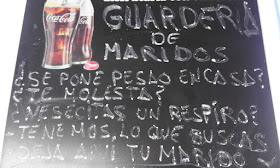 Coca-Cola
GUARDERIA
DE
MARIDOS
¿SE PONE PESAO EN CASA?
¿TE MOLESTA?
¿NESECITAS UN RESPIRO?
TENEMOS, LO QUE BUSCAS
DEJA AQUI TU MARIDO